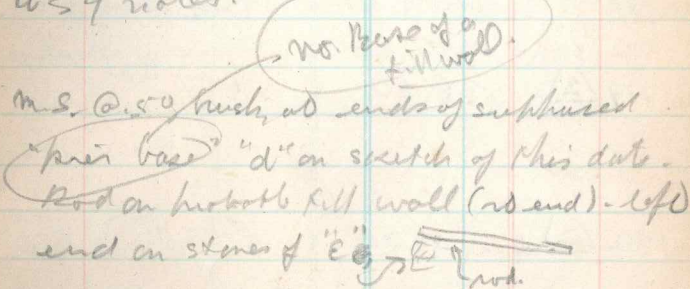 no. Base of a
fill wall.
m.s. @.50 brush, at ends of supposed
"pier base" "d" on sketch of this date.
Rod on probable fill wall (no end) - left
end on stones of "E"
rod.